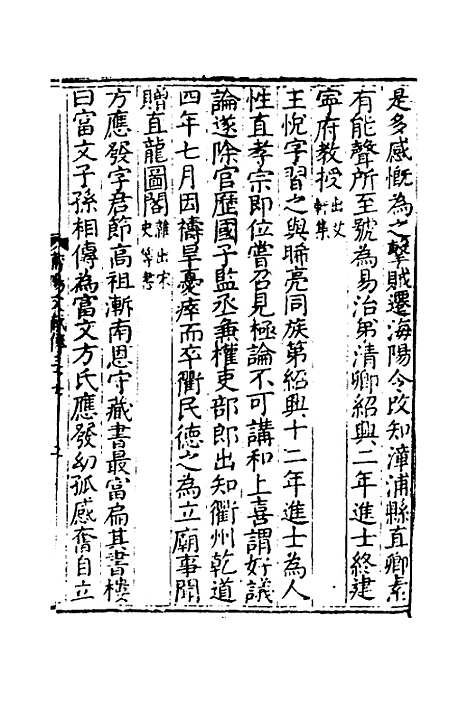 是多感慨為之擊賊遷海陽令改知漳浦縣直卿素
有能聲所至號為易治弟清卿紹興二年進士終建
寧府教授出艾軒集
王悅字習之與晞亮同族第紹興十二年進士為人
性直孝宗即位嘗召見極論不可講和上喜謂好議
論遂除官歷國子監丞兼權吏部郎出知衢州乾道
四年七月因禱旱憂瘁而卒衢民德之為立廟事聞
贈直龍圖閣雜出宋史等書
方應發字君節高祖漸南恩守藏書最富扁其書樓
曰富文子孫相傳為富文方氏應發幼孤感奮自立
莆陽文獻傳